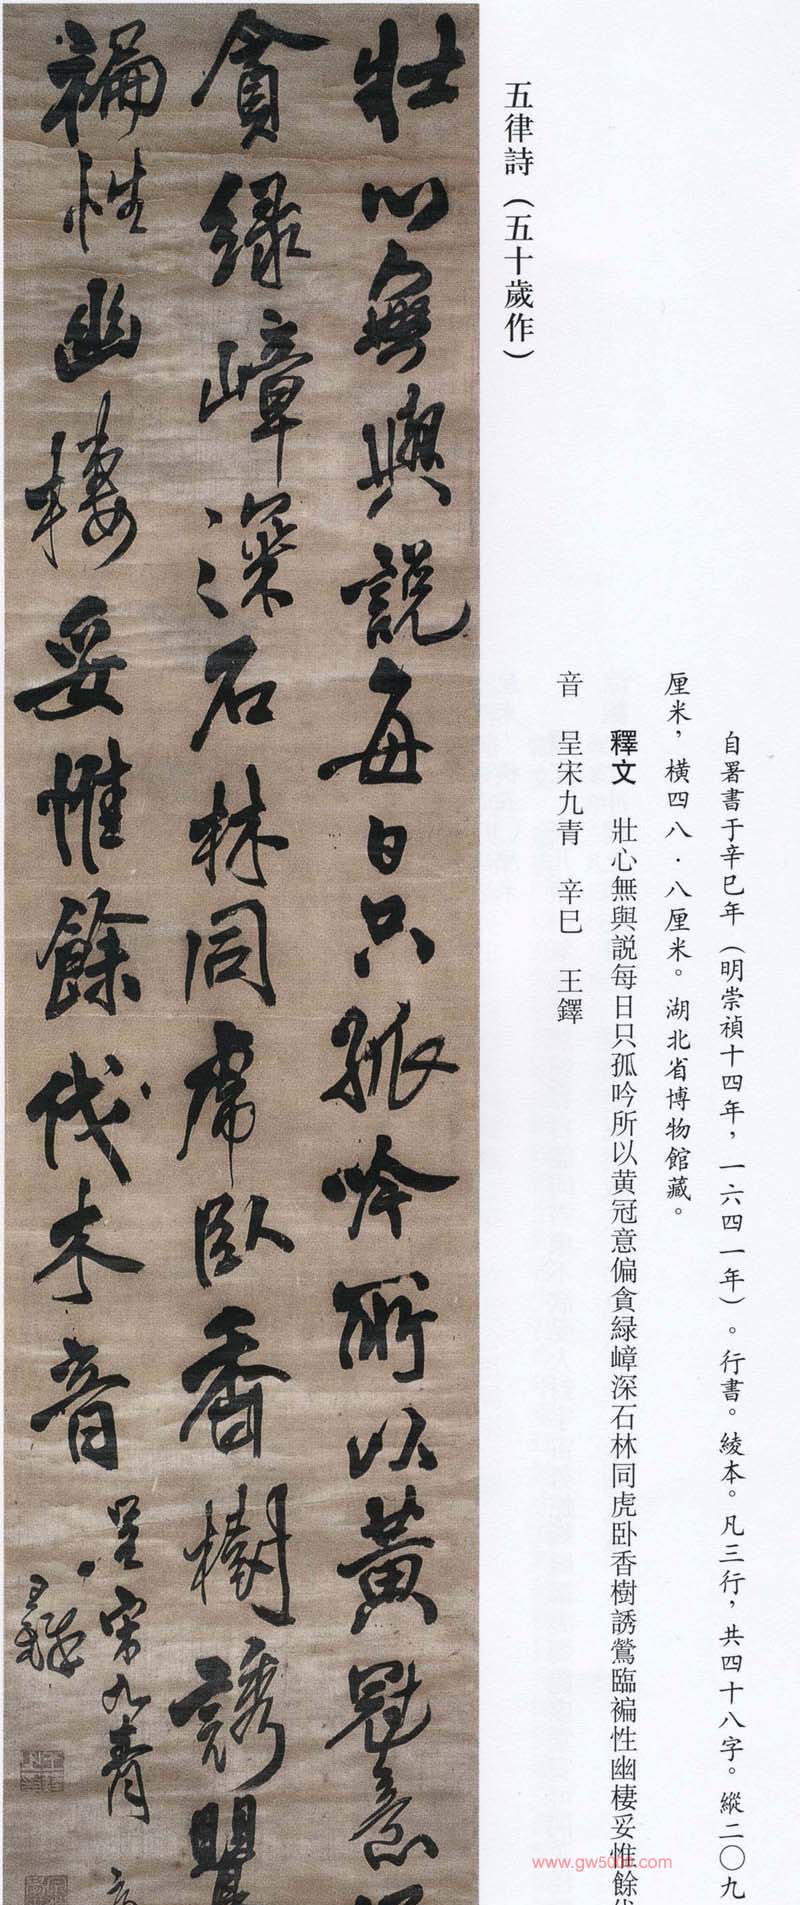 自署書于辛巳年（明崇禎十四年，一六四一年）。行書。綾本。凡三行，共四十八字。縱二〇九
厘米，橫四八·八厘米。湖北省博物館藏。
釋文　壯心無與説每日只孤吟所以黄冠意偏貪緑嶂深石林同虎卧香樹誘鶯臨褊性幽棲妥惟餘伐
音　呈宋九青　辛巳　王鐸
五律詩（五十歲作）
壯心無與説每日只孤吟所以黃冠意
貪緑嶂深石林同虎臥香樹誘
褊性幽棲妥惟餘伐木音
呈宋九青
王鐸
www.gw500f.com